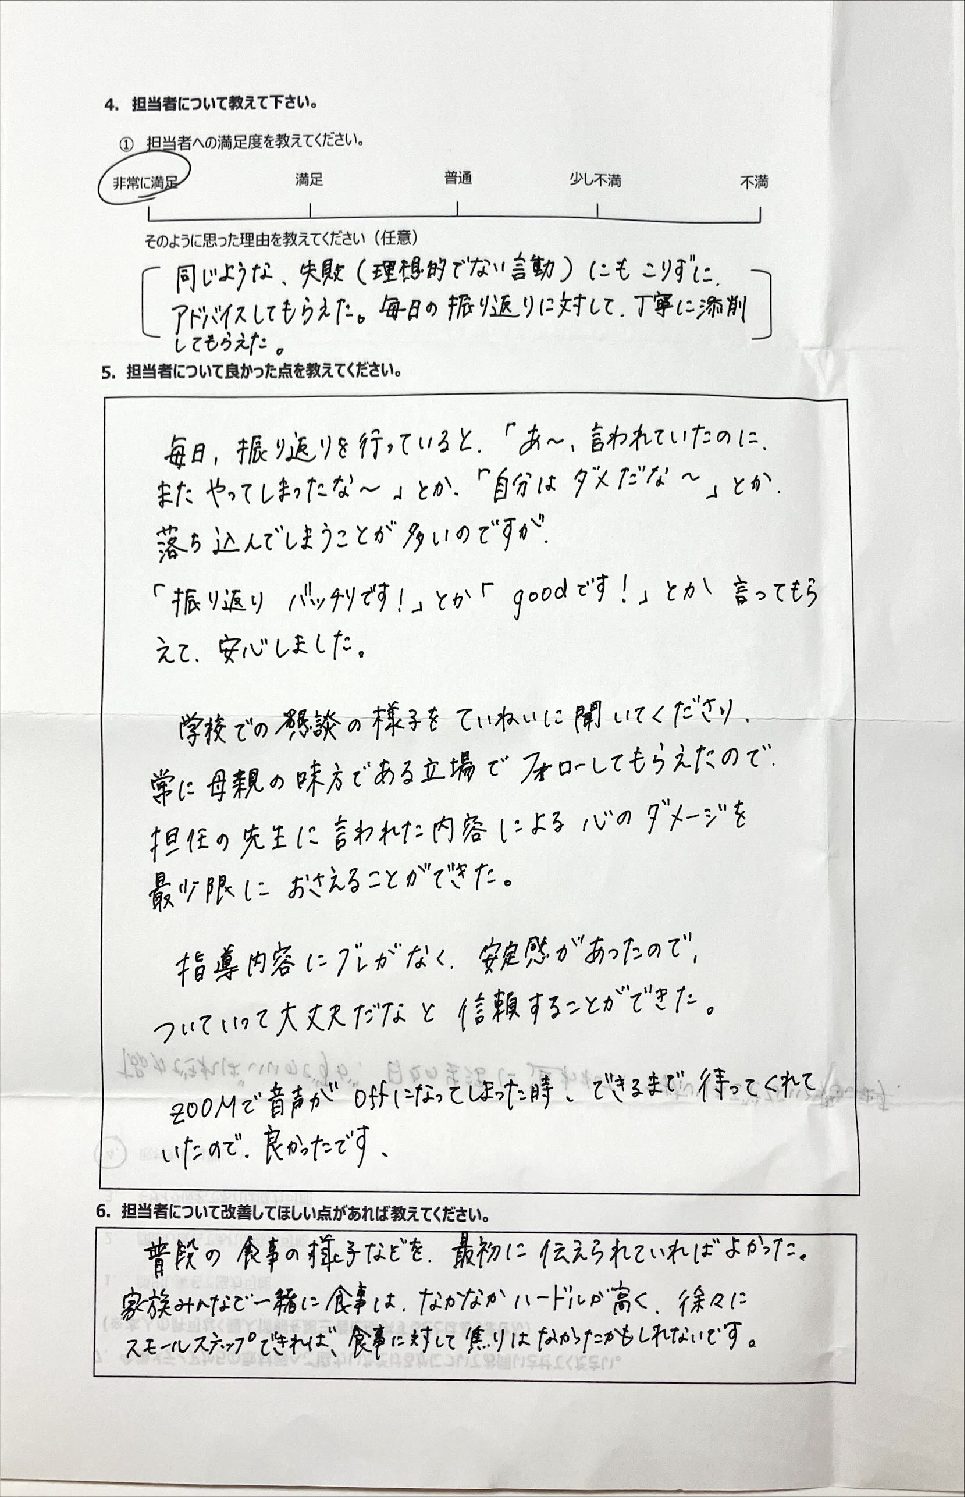 4. 担当者について教えて下さい。
① 担当者への満足度を教えてください。
非常に満足 満足 普通 少し不満 不満
そのように思った理由を教えてください（任意）
同じような、失敗（理想的でない言動）にもこりずに、
アドバイスしてもらえた。毎日の振り返りに対して、丁寧に添削
してもらえた。
5. 担当者について良かった点を教えてください。
毎日、振り返りを行っていると、「あ〜、言われていたのに、
またやってしまったな〜」とか、「自分はダメだな〜」とか、
落ち込んでしまうことが多いのですが、
「振り返りバッチリです！」とか「goodです！」とか言ってもら
えて、安心しました。
学校での懇談の様子をていねいに聞いてくださり、
常に母親の味方である立場でフォローしてもらえたので、
担任の先生に言われた内容による心のダメージを
最少限におさえることができた。
指導内容にブレがなく、安定感があったので、
ついていって大丈夫だなと信頼することができた。
ZOOMで音声がoffになってしまった時、できるまで待ってくれて
いたので、良かったです、
6. 担当者について改善してほしい点があれば教えてください。
普段の食事の様子などを、最初に伝えられていればよかった。
家族みんなで一緒に食事は、なかなかハードルが高く、徐々に
スモールステップできれば、食事に対して焦りはなかったかもしれないです。